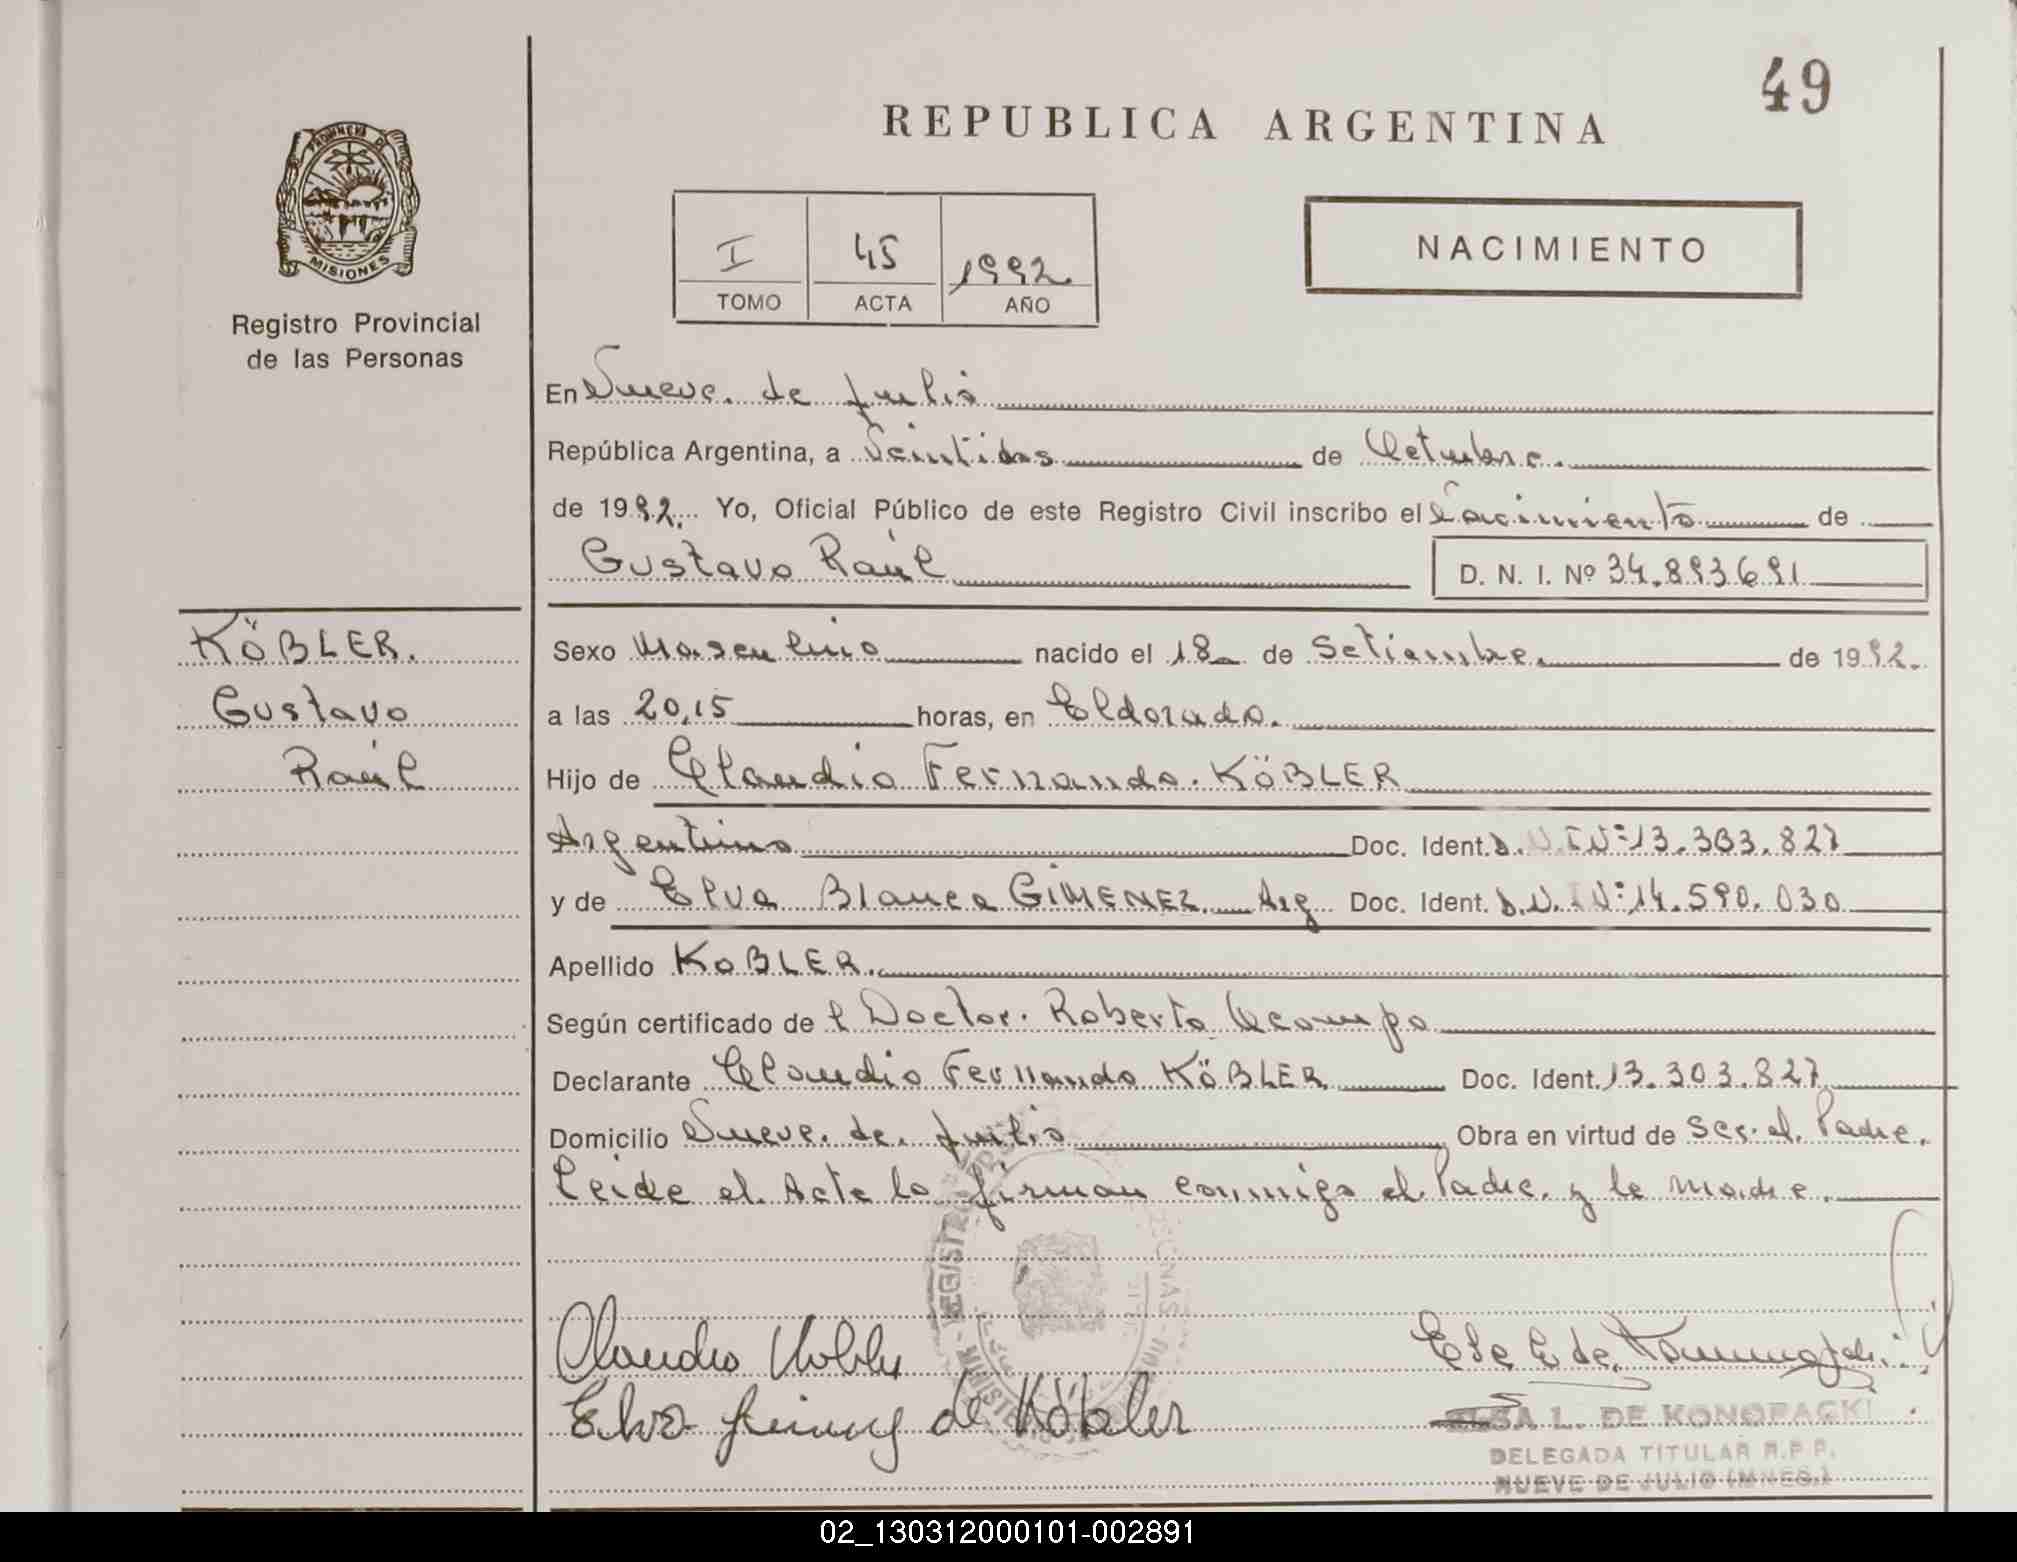 49
REPUBLICA ARGENTINA
PROVINCIA DE
MISIONES
Registro Provincial
de las Personas
I 45 1992
TOMO ACTA AÑO
NACIMIENTO
En Nueve de Julio
República Argentina, a Veintidos de Octubre.
de 1992. Yo, Oficial Público de este Registro Civil inscribo el Nacimiento de
Gustavo Raúl D. N. I. Nº 34.893691
KÖBLER.
Gustavo
Raúl
Sexo Masculino nacido el 18 de Setiembre. de 1992.
a las 20,15 horas, en Eldorado.
Hijo de Claudio Fernando. KÖBLER
Argentino Doc. Ident. D.N.I Nº 13.303.827
y de Elva Blanca GIMENEZ Arg Doc. Ident. D.N.I Nº 14.590.030
Apellido KOBLER.
Según certificado de l Doctor. Roberto Ocampo
Declarante Claudio Fernando KÖBLER Doc. Ident. 13.303.827
Domicilio Nueve. de. Julio Obra en virtud de ser el Padre.
Leida el Acta la firman conmigo el Padre. y la madre.
Claudio Kobler
Elva de Köbler
L. DE KONOPACKI
DELEGADA TITULAR R.P.P.
NUEVE DE JULIO (MNES.)
02_130312000101-002891